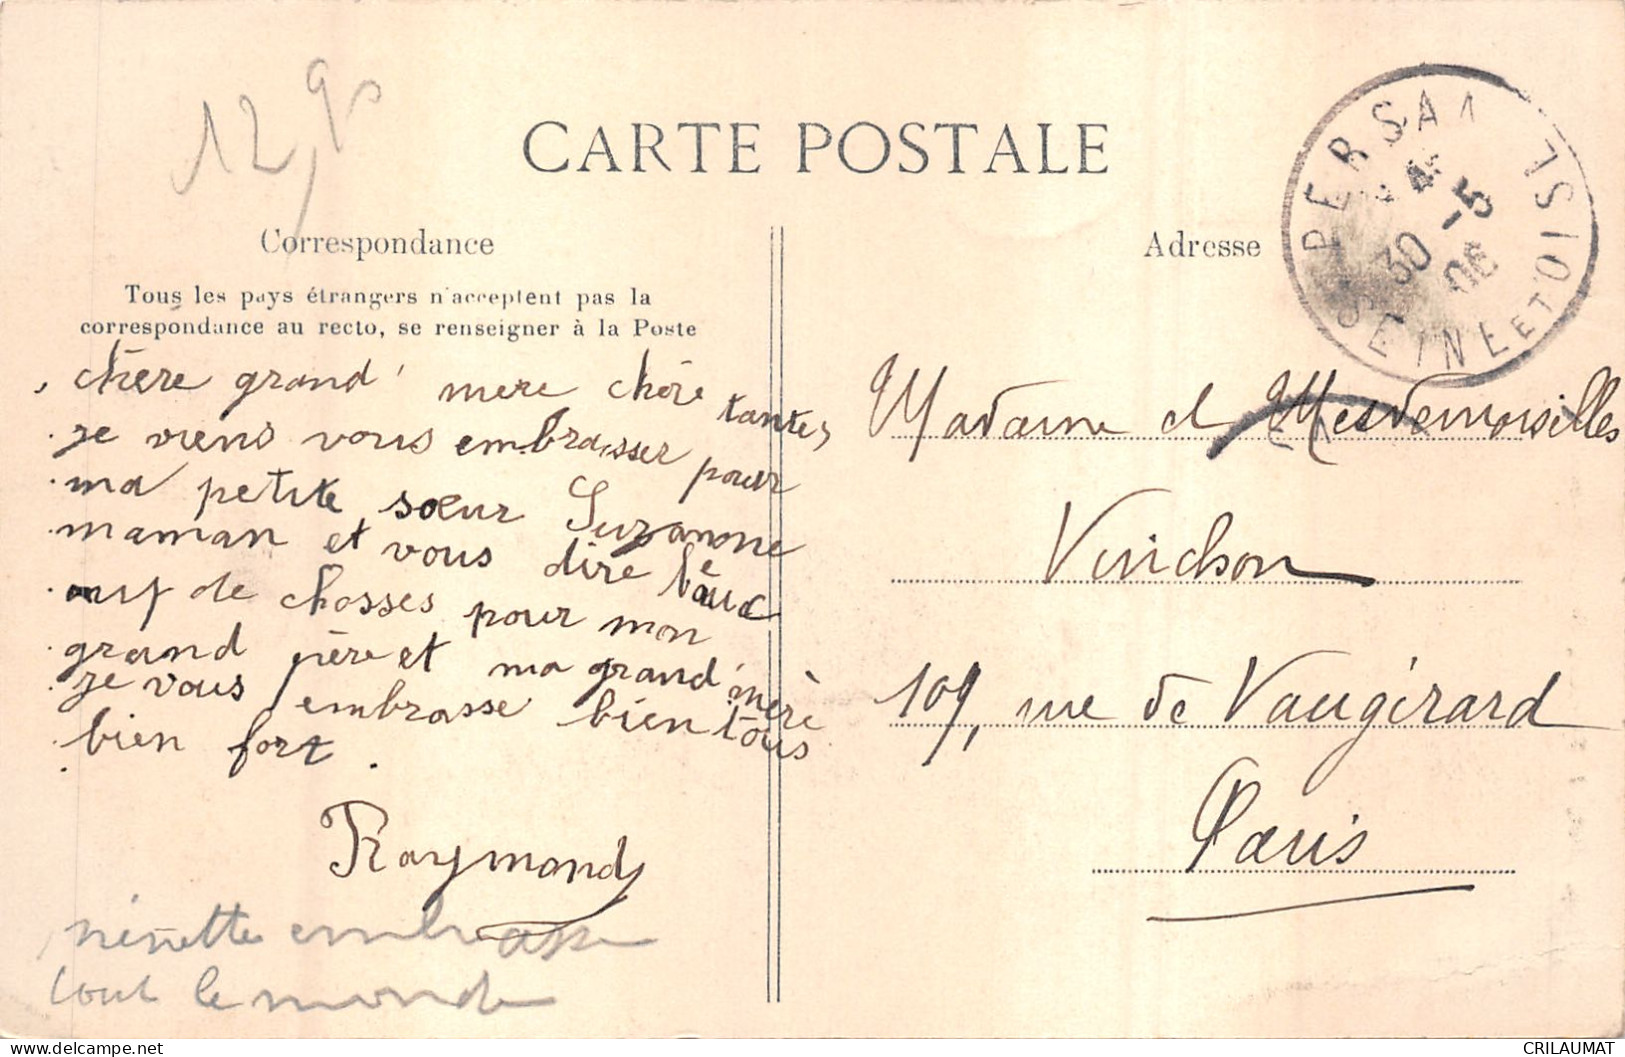 12,90
CARTE POSTALE
Correspondance
Tous les pays étrangers n'acceptent pas la
correspondance au recto, se renseigner à la Poste
chère grand' mère chère tantes
je viens vous embrasser pour
ma petite sœur Suzanne
maman et vous dire beauc
de chosses pour mon
grand père et ma grand' mère
je vous embrasse bien tous
bien fort.
Raymond
nénette embrasse
tout le monde
Adresse
PERSAN
SEINE ET OISE
30 -5
06
Madame et Mesdemoiselles
Vinchon
109, rue de Vaugirard
Paris
CRILAUMAT